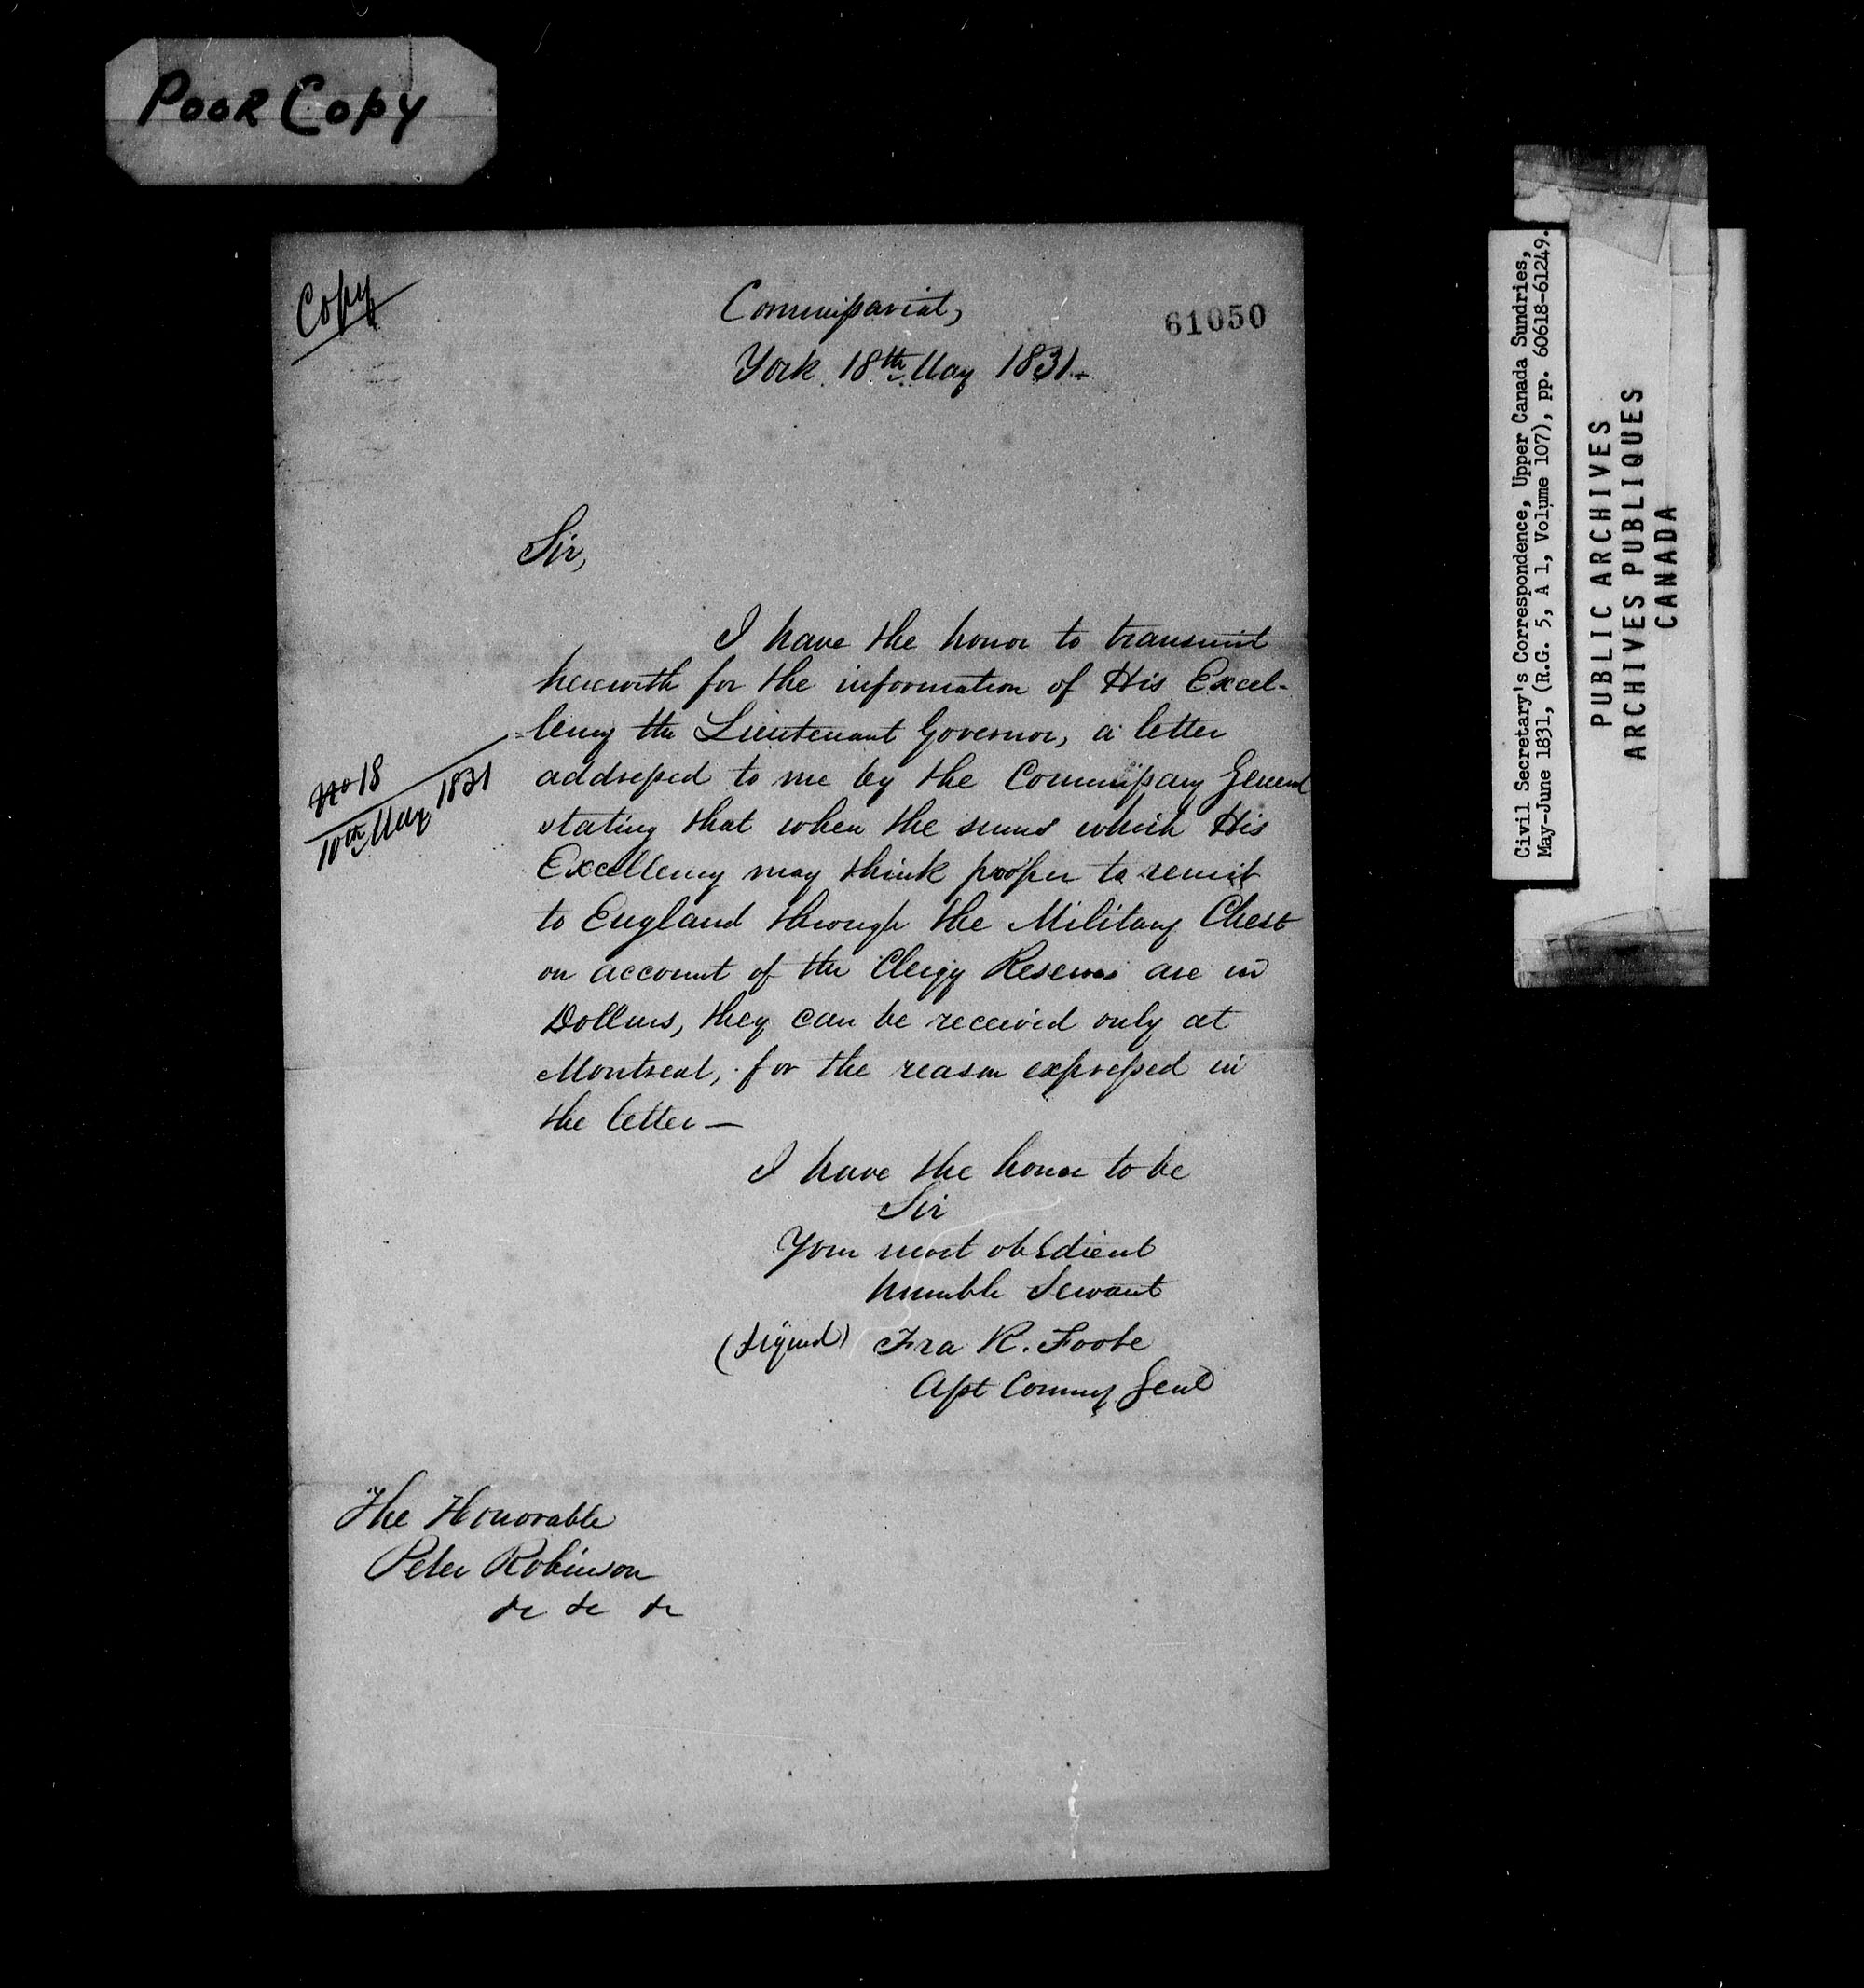 Poor Copy
Copy
61050
Commissariat,
York 18th May 1831.-
Sir,
I have the honor to transmit
herewith for the information of His Excel-
=lency the Lieutenant Governor, a letter
No 18
10th May 1831
addressed to me by the Commissary General
stating that when the sums which His
Excellency may think proper to remit
to England through the Military Chest
on account of the Clergy Reserves are in
Dollars, they can be received only at
Montreal, for the reason expressed in
the letter —
I have the honor to be
Sir
Your most obedient
humble Servant
(signed) Fra R. Foote
Asst Commy Genl
The Honorable
Peter Robinson
&c &c &c
Civil Secretary's Correspondence, Upper Canada Sundries,
May-June 1831, (R.G. 5, A 1, Volume 107), pp. 60618-61249.
PUBLIC ARCHIVES
ARCHIVES PUBLIQUES
CANADA